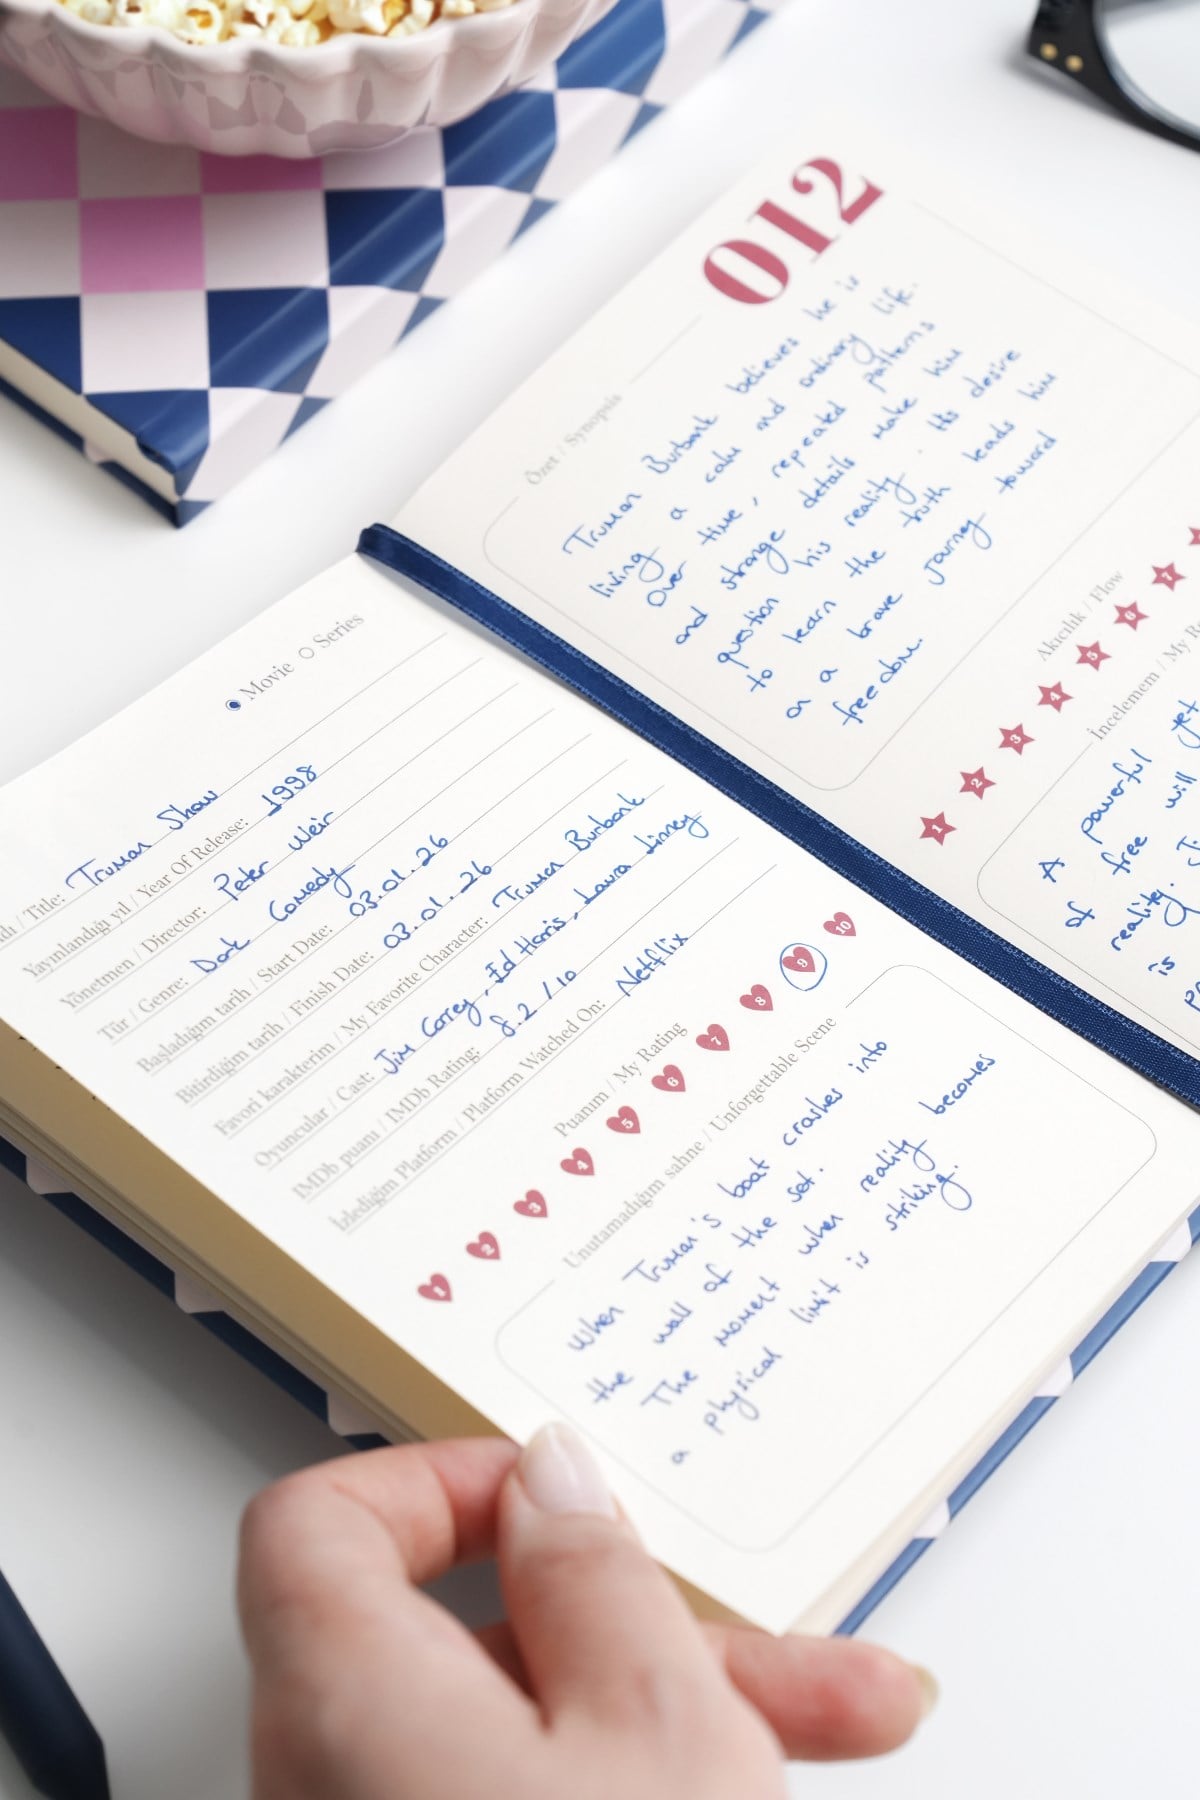 Movie Series
Title: Truman Show
Yayınlandığı yıl / Year Of Release: 1998
Yönetmen / Director: Peter Weir
Tür / Genre: Dark Comedy
Başladığım tarih / Start Date: 03.01.26
Bitirdiğim tarih / Finish Date: 03.01.26
Favori karakterim / My Favorite Character: Truman Burbank
Oyuncular / Cast: Jim Carrey, Ed Harris, Laura Linney
IMDb puanı / IMDb Rating: 8.2 / 10
İzlediğim Platform / Platform Watched On: Netflix
Puanım / My Rating
1 2 3 4 5 6 7 8 9 10
Unutamadığım sahne / Unforgettable Scene
When Truman's boat crashes into
the wall of the set.
The moment when reality becomes
a physical limit is striking.
012
Özet / Synopsis
Truman Burbank believes he is
living a calm and ordinary life.
Over time, repeated patterns
and strange details make him
question his reality. His desire
to learn the truth leads him
on a brave journey toward
freedom.
Akıcılık / Flow
1 2 3 4 5 6 7
İncelemem / My
A powerful yet
of free will
reality.
is